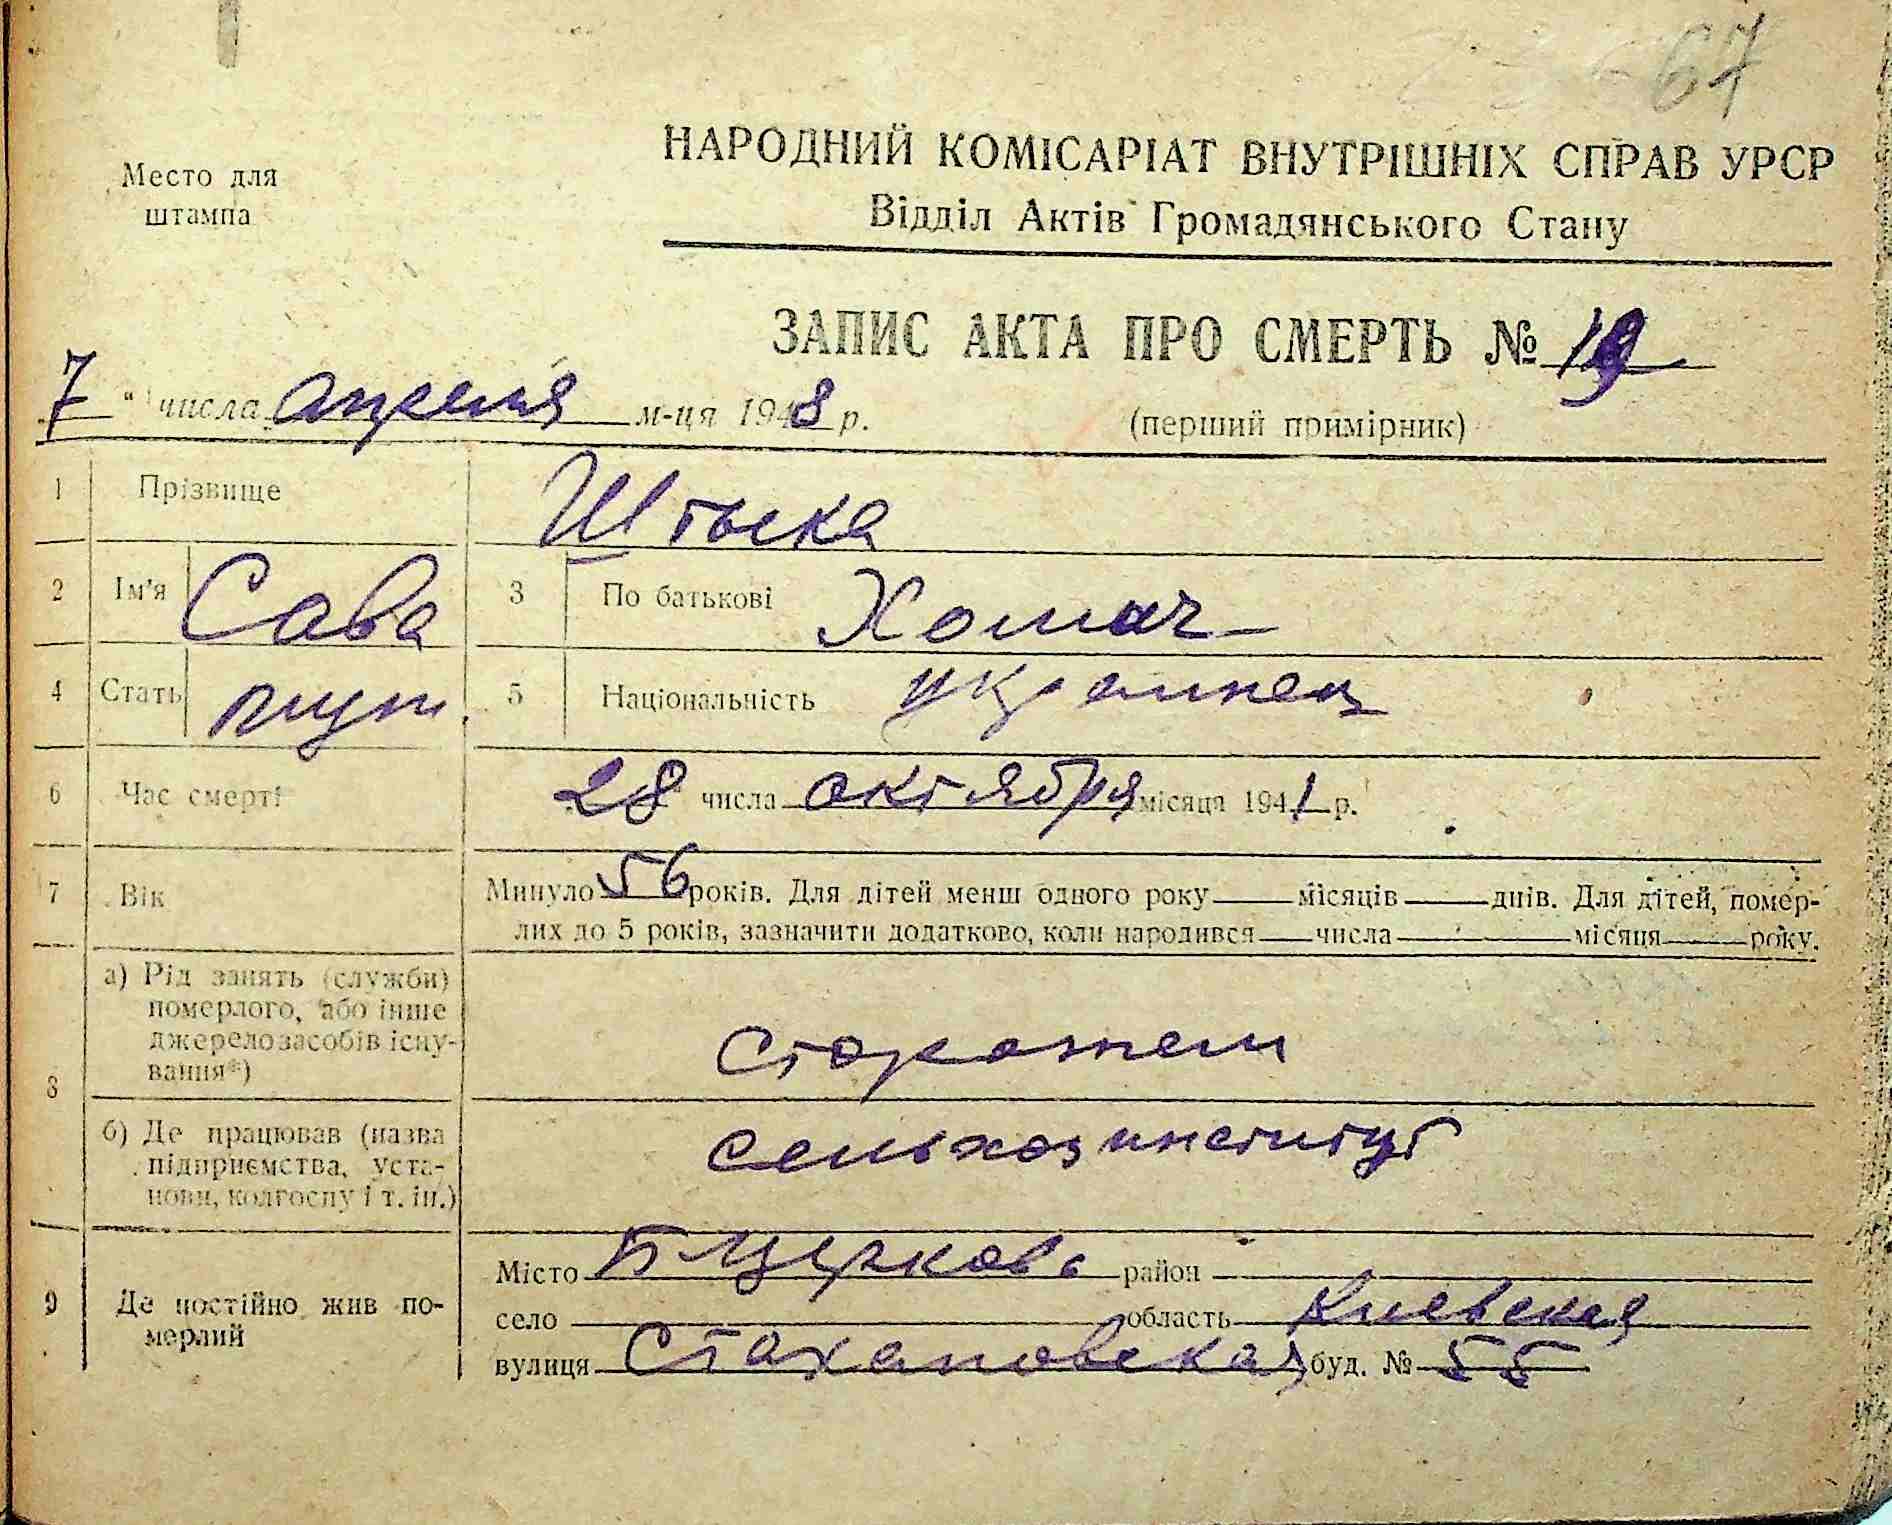 67
Место для
штампа
НАРОДНИЙ КОМІСАРІАТ ВНУТРІШНІХ СПРАВ УРСР
Відділ Актів Громадянського Стану
ЗАПИС АКТА ПРО СМЕРТЬ № 19
7 " числа апреля м-ця 1948 р.
(перший примірник)
1 Прізвище Штыка
2 Ім'я Сава 3 По батькові Хомич
4 Стать муж. 5 Національність украинец
6 Час смерті 28 числа октября місяца 1941 р.
7 Вік Минуло 56 років. Для дітей менш одного року місяців днів. Для дітей, помер-
лих до 5 років, зазначити додатково, коли народився числа місяця року.
8 а) Рід занять (служби)
померлого, або інше
джерело засобів існу-
вання*)
сторожем
б) Де працював (назва
підприємства, уста-
нови, колгоспу і т. ін.)
сельхозинститут
9 Де постійно жив по-
мерлий
Місто Б Церковь район
село область Киевская
вулиця Стахановская буд. № 55